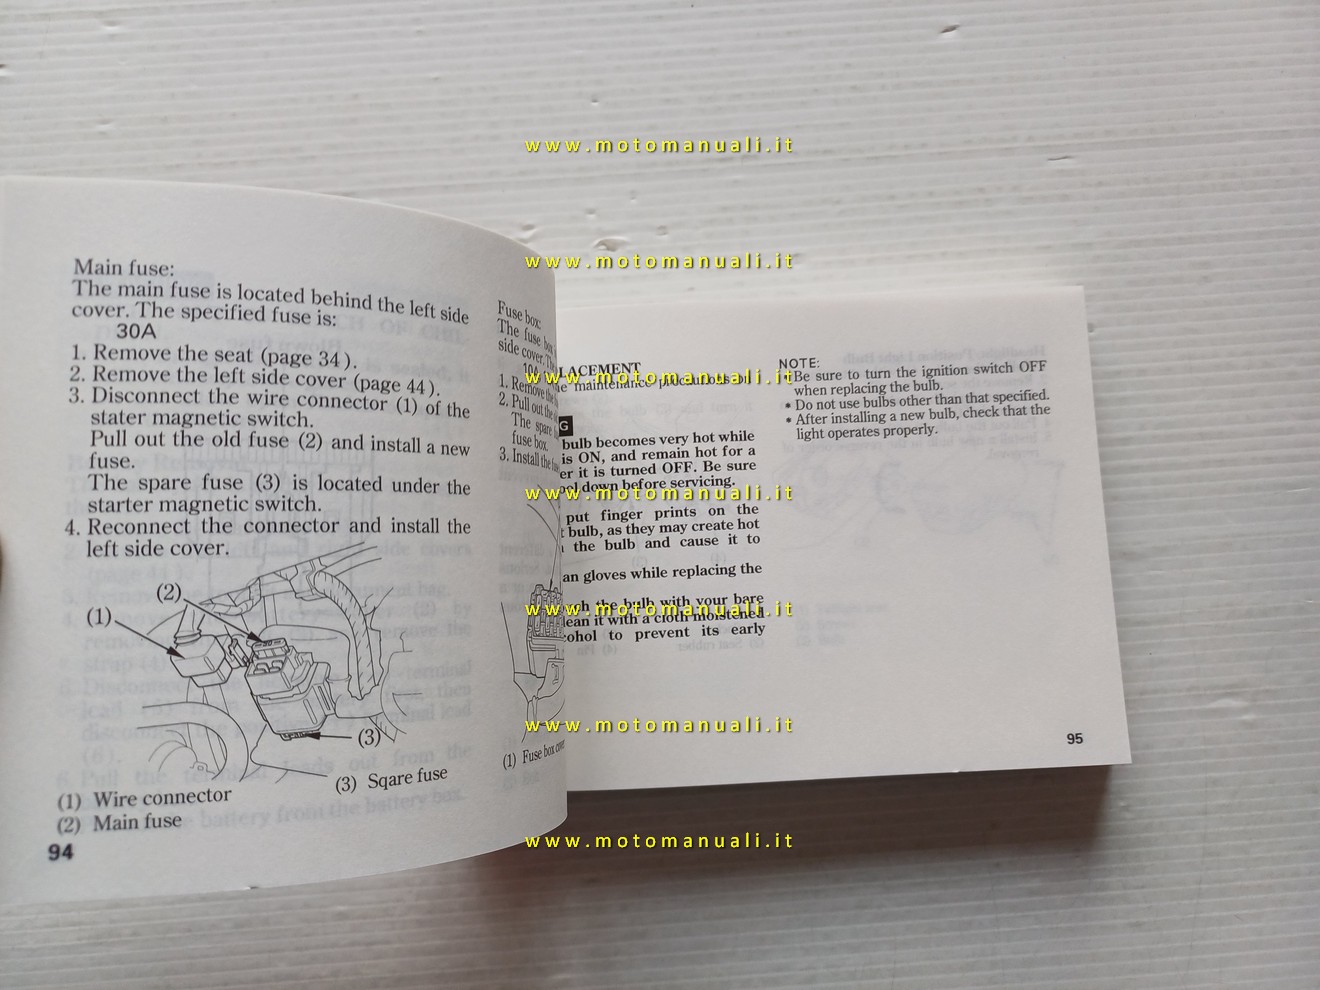 Main fuse:
The main fuse is located behind the left side
cover. The specified fuse is:
30A
1. Remove the seat (page 34).
2. Remove the left side cover (page 44).
3. Disconnect the wire connector (1) of the
stater magnetic switch.
Pull out the old fuse (2) and install a new
fuse.
The spare fuse (3) is located under the
starter magnetic switch.
4. Reconnect the connector and install the
left side cover.
(2)
(1)
(3)
(3) Sqare fuse
(1) Wire connector
(2) Main fuse
94
Fuse box:
The fuse box
side cover. The
1. Remove the
2. Pull out the
The spare
fuse box.
3. Install the
(1) Fuse box cover
LACEMENT
maintenance precautions on
G
bulb becomes very hot while
is ON, and remain hot for a
er it is turned OFF. Be sure
down before servicing.
put finger prints on the
bulb, as they may create hot
the bulb and cause it to
an gloves while replacing the
the bulb with your bare
lean it with a cloth moistened
cohol to prevent its early
NOTE:
* Be sure to turn the ignition switch OFF
when replacing the bulb.
* Do not use bulbs other than that specified.
* After installing a new bulb, check that the
light operates properly.
95
www.motomanuali.it
www.motomanuali.it
www.motomanuali.it
www.motomanuali.it
www.motomanuali.it
www.motomanuali.it
www.motomanuali.it